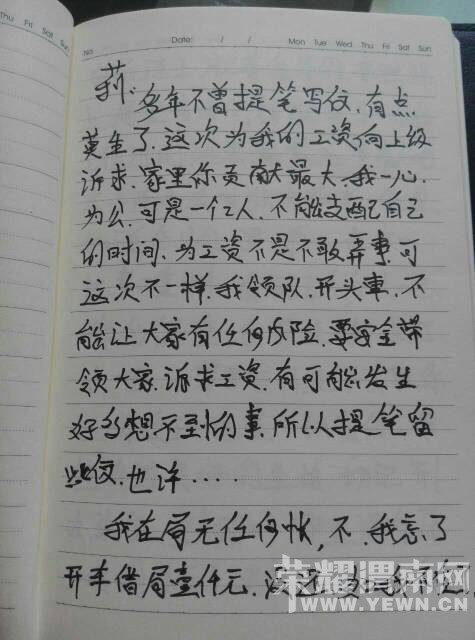 Thu Fri Sat Sun
No.
Date: / /
Mon Tue Wed Thu Fri Sat Sun
莉:
多年不曾提笔写仅,有点
莫生了.这次为我的工资向上级
诉求.家里你贡献最大.我一心
为公.可是一个工人.不能支配自己
的时间.为工资不是不敢弄事可
这次不一样.我领队.开头車.不
能让大家有任何风险.要安全带
领大家.诉求工资.有可能发生
好多想不到的事.所以提笔留
些仅.也许....
我在局无任何帐,不.我忘了
开丰借局壹仟元.没还
荣耀渭南网
WWW.YEWN.CN